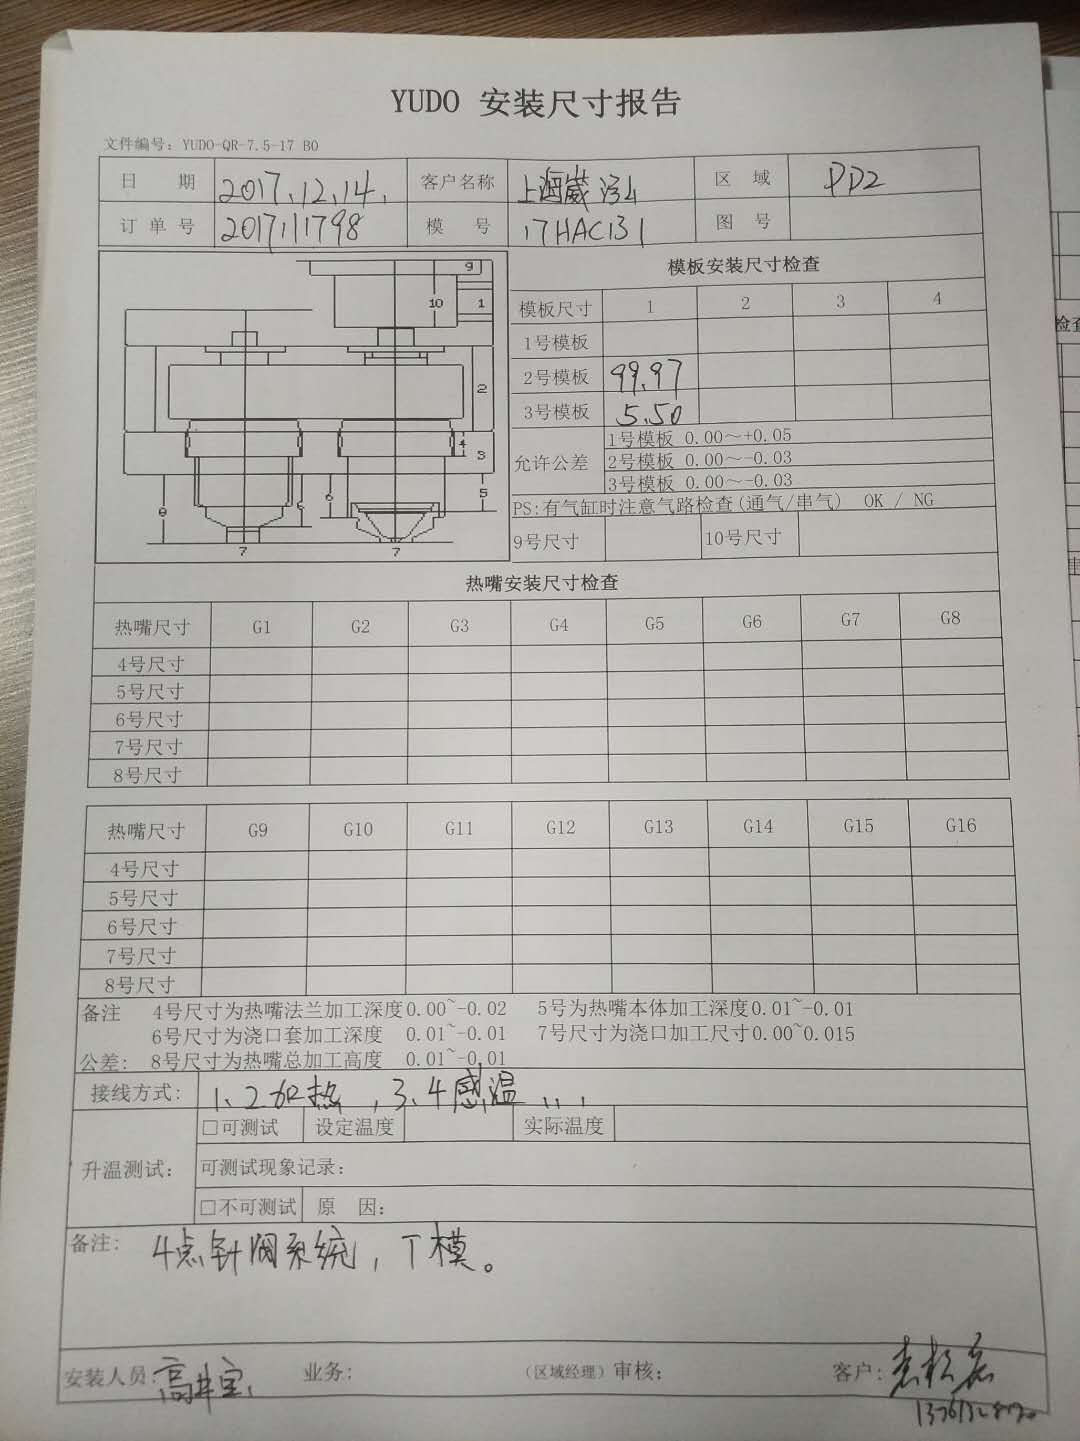 YUDO 安装尺寸报告
文件编号: YUDO-QR-7.5-17 B0
日 期 2017.12.14. 客户名称 上海崴泓 区 域 PD2
订 单 号 201711798 模 号 17HAC131 图 号
模板安装尺寸检查
模板尺寸 1 2 3 4
1号模板
2号模板 99.97
3号模板 5.50
允许公差 1号模板 0.00～+0.05
2号模板 0.00～-0.03
3号模板 0.00～-0.03
PS:有气缸时注意气路检查(通气/串气) OK / NG
9号尺寸 10号尺寸
9
10 1
2
4 3
5
8 6 6
7 7
热嘴安装尺寸检查
热嘴尺寸 G1 G2 G3 G4 G5 G6 G7 G8
4号尺寸
5号尺寸
6号尺寸
7号尺寸
8号尺寸
热嘴尺寸 G9 G10 G11 G12 G13 G14 G15 G16
4号尺寸
5号尺寸
6号尺寸
7号尺寸
8号尺寸
备注 4号尺寸为热嘴法兰加工深度0.00~-0.02 5号为热嘴本体加工深度0.01~-0.01
6号尺寸为浇口套加工深度 0.01~-0.01 7号尺寸为浇口加工尺寸0.00~0.015
公差: 8号尺寸为热嘴总加工高度 0.01~-0.01
接线方式: 1、2加热，3、4感温
□可测试 设定温度 实际温度
升温测试: 可测试现象记录:
□不可测试 原 因:
备注: 4点针阀系统，T模。
安装人员: 高井宝 业务: (区域经理)审核: 客户: